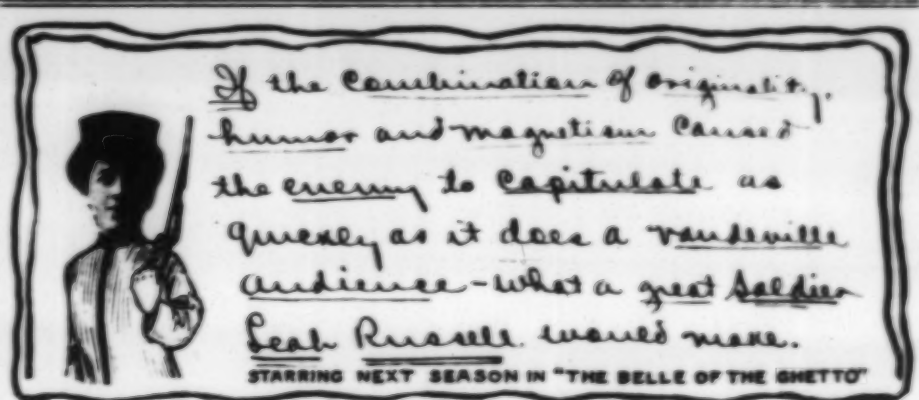 If the combination of originality,
humor and magnetism caused
the enemy to capitulate as
quickly as it does a vaudeville
audience - what a great soldier
Leah Russell would make.
STARRING NEXT SEASON IN "THE BELLE OF THE GHETTO"